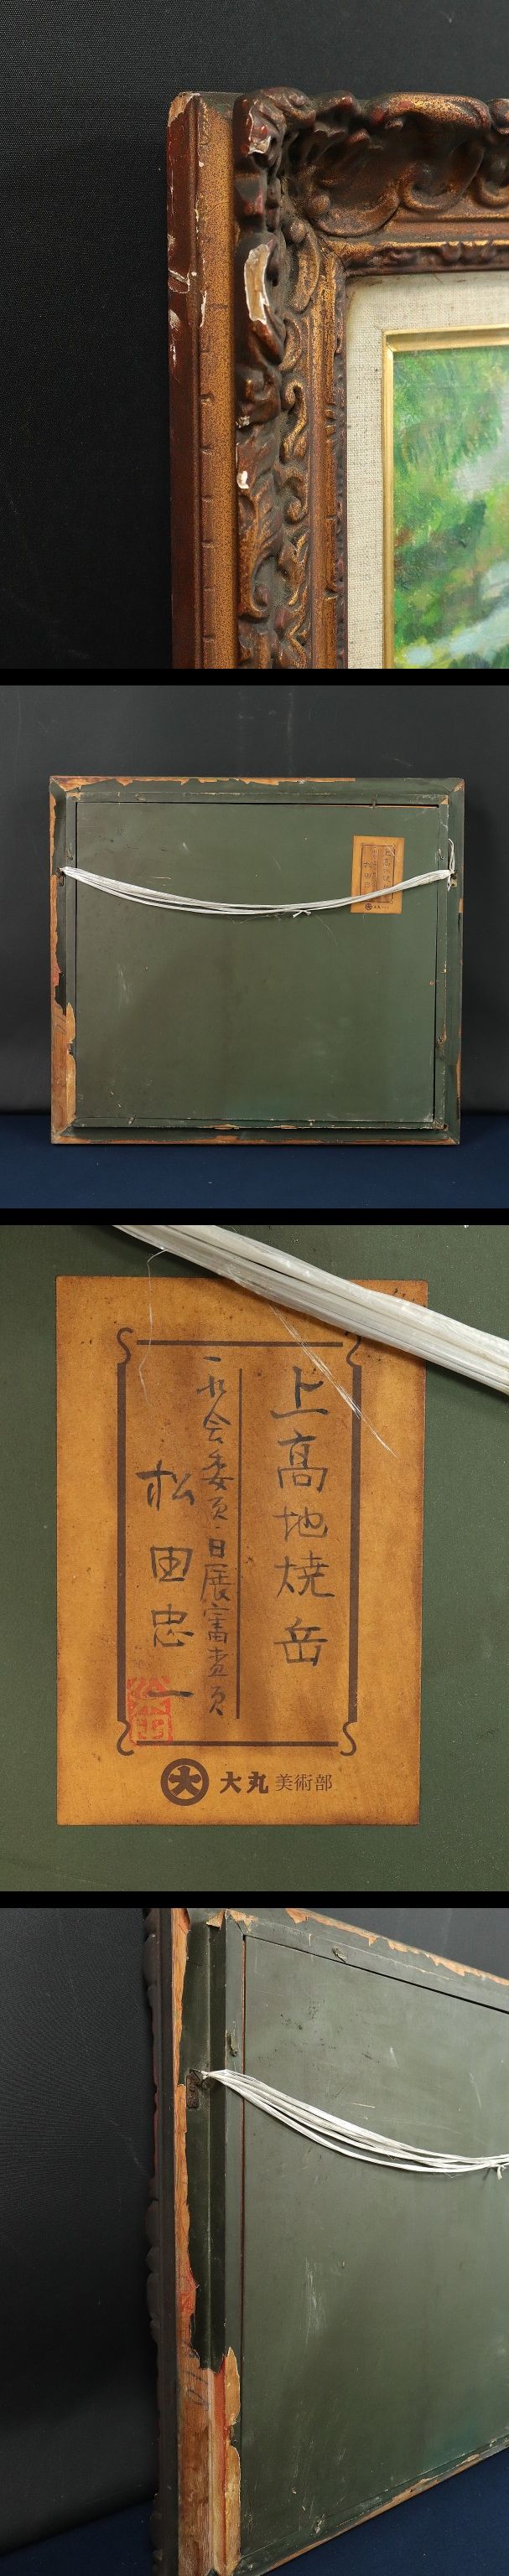 上高地焼岳
一水会委員・日展審査員
松田忠一
大 大丸 美術部